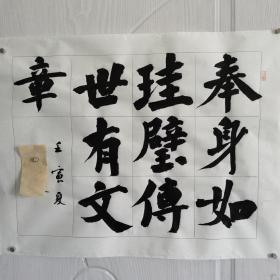 奉身如
珪璧傳
世有文
章
壬寅夏